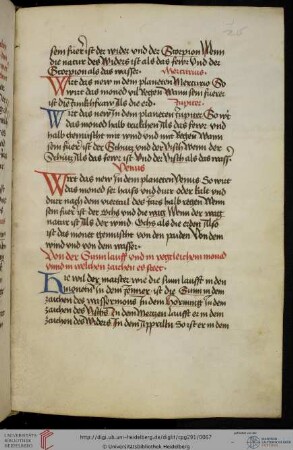 sein fewr ist der wider vnd der Scorpion Wenn
die natur des widers ist als das fewr vnd der
Scorpion als das wasser Mercurius
Wirt das new in dem planeten Mercurio So
wirt das moned vil regen Wann sein fewer
ist die Junckfraw als die erd
Jupiter
Wirt das new in dem planeten Jupiter So
das moned halb als das fewr vnd
halb gemischt mit wind vnd mit regen Wann
sein fewr ist der Schütz vnd der visch Wenn der
Schütz als das fewr ist vnd der visch als das
Venus
Wirt das new in dem planeten Venus So wirt
das moned haiß vnd dürr oder kalt vnd
dürr nach dem viertail des jars halb regen Wenn
sein fewr ist der ochs vnd die wag Wenn der
natur ist als der wind Ochs als die erden Also
ist das monet gemischt von den paiden Von dem
wind vnd von dem wasser
Von der Sunn lauff vnd in yegleichem moned
vnd in welchen zaichen es steet
Hie wil der maister wie die Sun laufft in den
in dem Jenner ist die Sunn in dem
zaichen des wassermons In dem hornung in den
zaichen des In dem Mertzen laufft er in dem
zaichen des widers In dem Appriln So ist er in dem
http://digi.ub.uni-heidelberg.de/diglit/cpg291/0067
© Universitätsbibliothek Heidelberg
UNIVERSITÄTS-
BIBLIOTHEK
HEIDELBERG